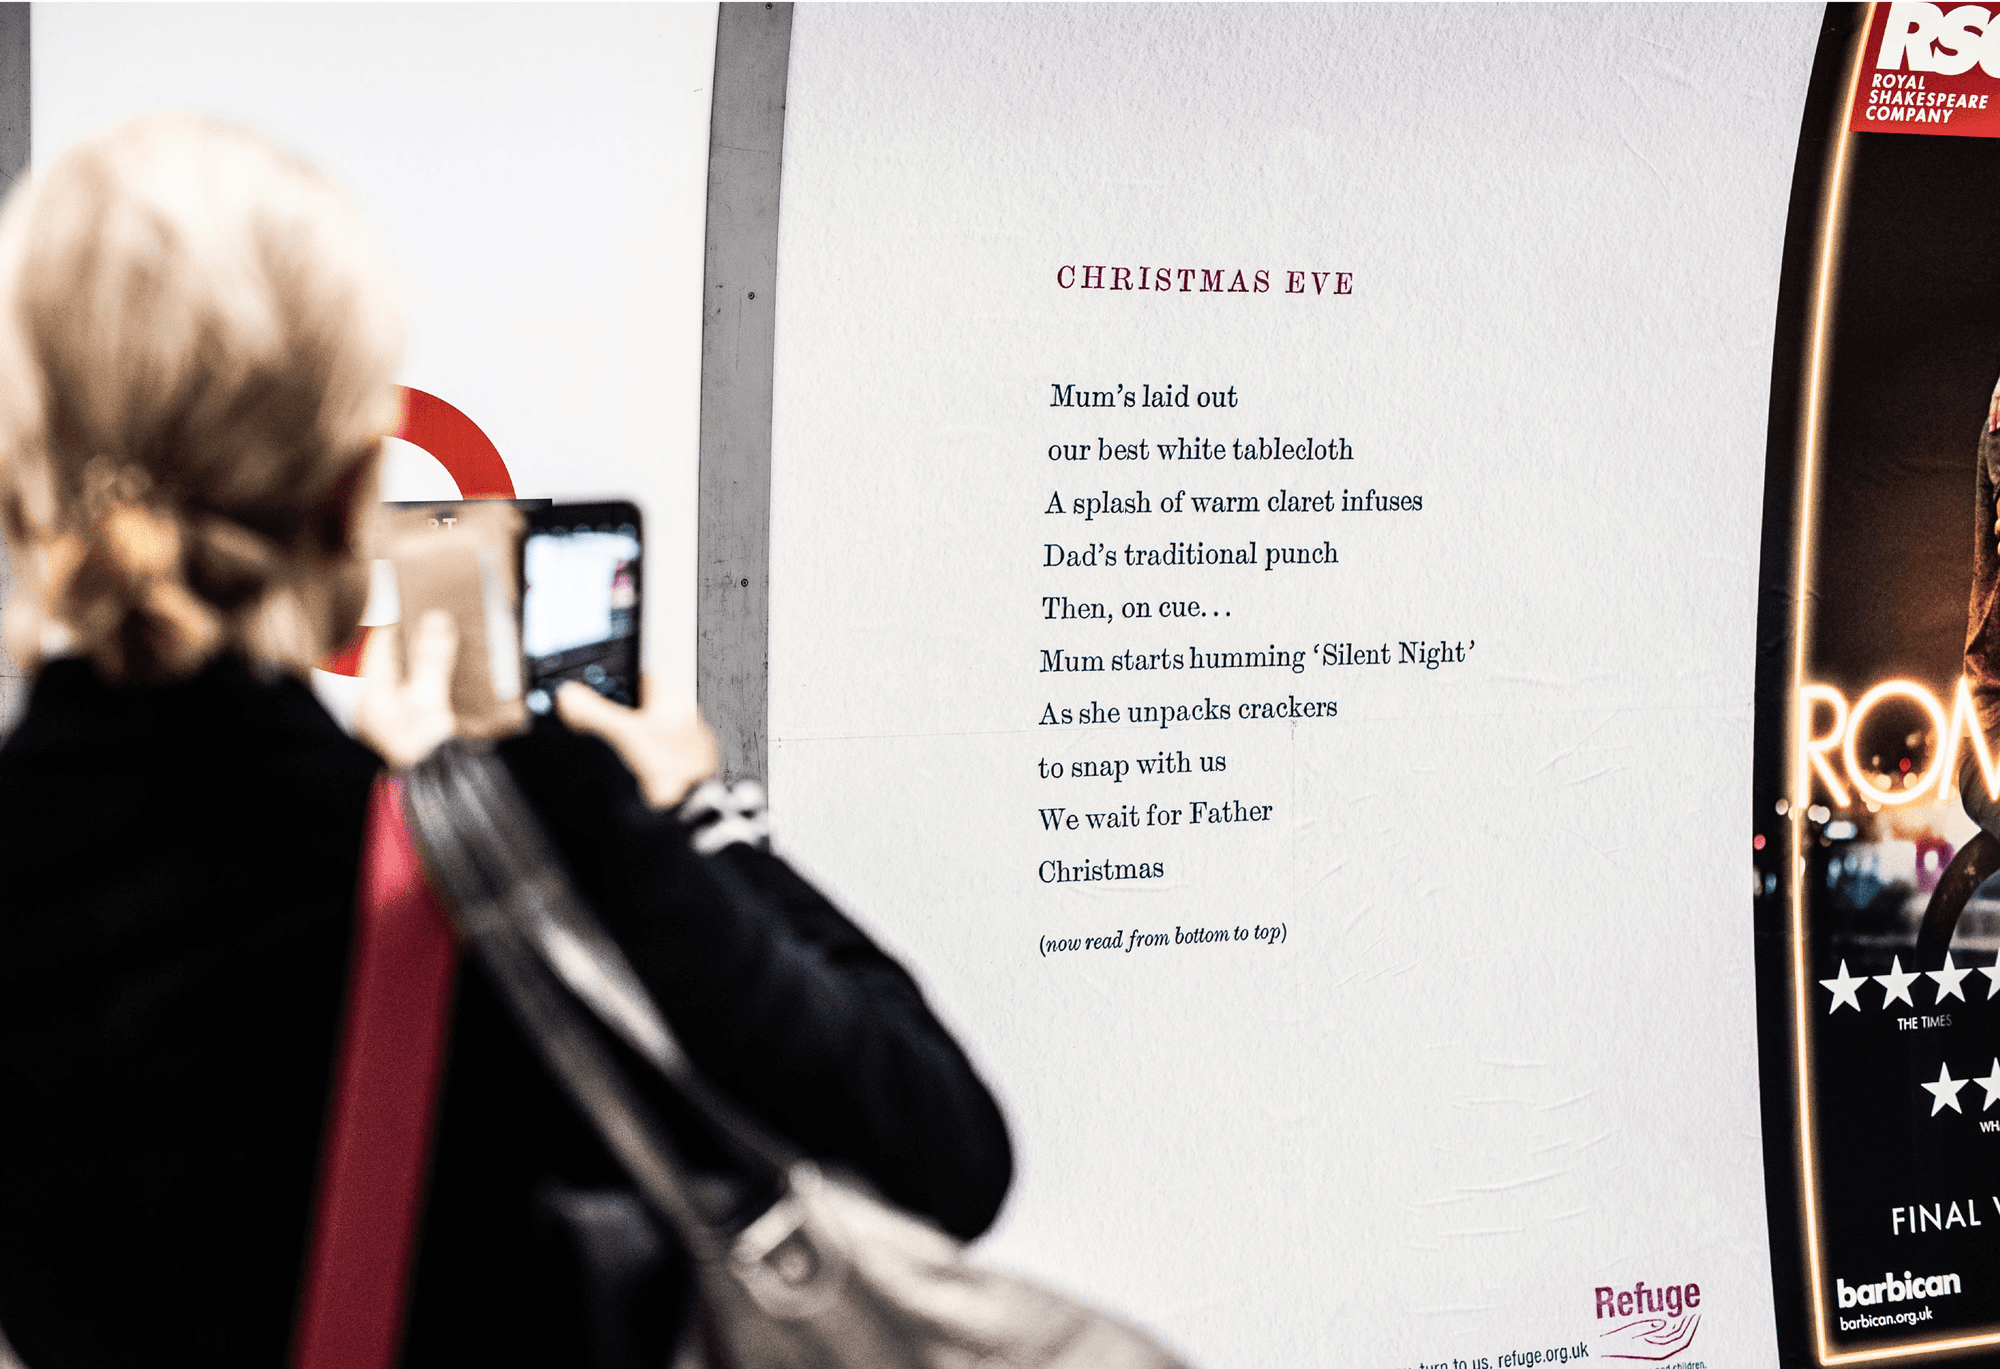 CHRISTMAS EVE
Mum's laid out
our best white tablecloth
A splash of warm claret infuses
Dad's traditional punch
Then, on cue...
Mum starts humming ‘Silent Night’
As she unpacks crackers
to snap with us
We wait for Father
Christmas
(now read from bottom to top)
turn to us. refuge.org.uk
Refuge
and children.
RSC
ROYAL
SHAKESPEARE
COMPANY
ROM
THE TIMES
WH
FINAL
barbican
barbican.org.uk